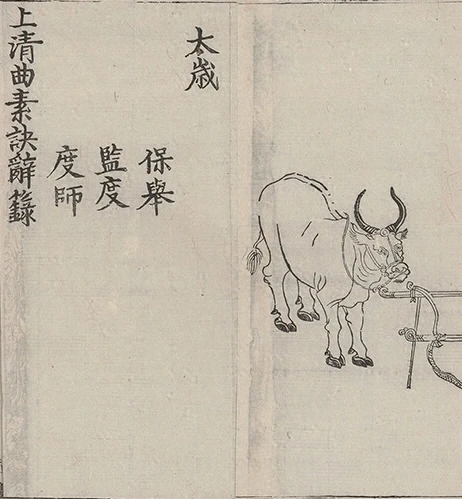 太歲
保舉
監度
度師
上清曲素訣辭籙